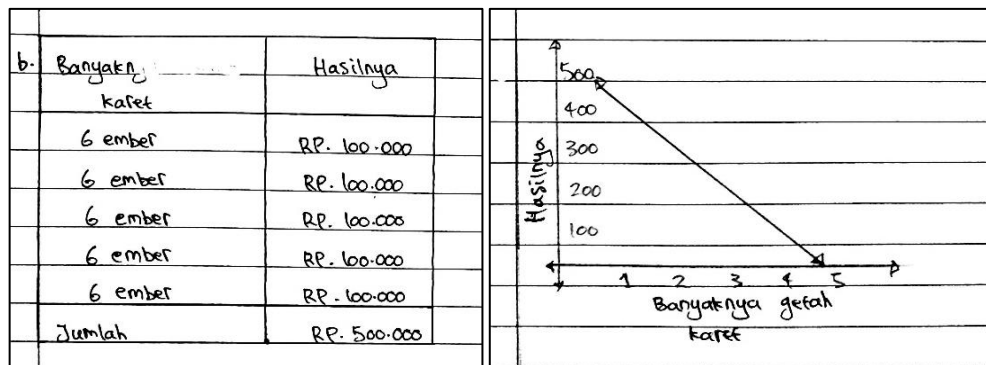 b.
Banyakn
Hasilnya
karet
6 ember
RP. 100.000
6 ember
RP. 100.000
6 ember
RP. 100.000
6 ember
RP. 100.000
6 ember
RP. 100.000
Jumlah
RP. 500.000
500
400
300
200
100
Hasilnya
1 2 3 4 5
Banyaknya getah
karet